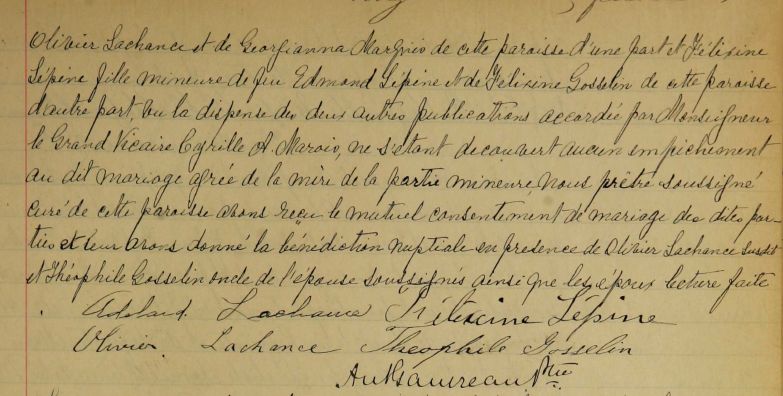 Olivier Lachance et de Georgianna Marquis de cette paroisse d'une part et Félixine
Lépine fille mineure de feu Edmond Lépine et de Félixine Gosselin de cette paroisse
d'autre part, vu la dispense des deux autres publications accordée par Monseigneur
le Grand Vicaire Cyrille A. Marois, ne s'étant découvert aucun empêchement
au dit mariage agrée de la mère de la partie mineure, Nous prêtre soussigné
curé de cette paroisse avons reçu le mutuel consentement de mariage des dites par-
ties et leur avons donné la bénédiction nuptiale en présence de Olivier Lachance susdit
et Théophile Gosselin oncle de l'épouse soussignés ainsi que les époux lecture faite
Adelard Lachance Félixine Lépine
Olivier Lachance Théophile Gosselin
Ptre